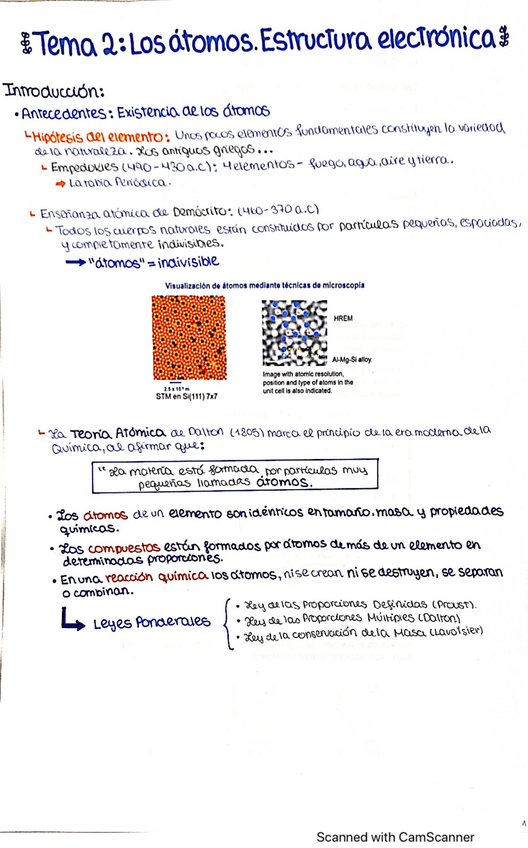 Tema 2: Los átomos. Estructura electrónica
Introducción:
• Antecedentes: Existencia de los átomos
↳ Hipótesis del elemento: Unos pocos elementos fundamentales constituyen la variedad
de la naturaleza. Los antiguos griegos...
↳ Empedokles (490-430 a.C): 4 elementos - fuego, agua, aire y tierra.
⇒ La tabla Periódica.
↳ Enseñanza atómica de Demócrito: (460-370 a.C)
↳ Todos los cuerpos naturales están constituidos por partículas pequeñas, espaciadas,
y completamente indivisibles.
→ "átomos" = indivisible
Visualización de átomos mediante técnicas de microscopia
HREM
Al-Mg-Si alloy.
Image with atomic resolution,
position and type of atoms in the
unit cell is also indicated.
STM en Si(111) 7x7
↳ La Teoría Atómica de Dalton (1805) marca el principio de la era moderna de la
Química, al afirmar que:
"La materia está formada por partículas muy
pequeñas llamadas átomos.
• Los átomos de un elemento son idénticos en tamaño, masa y propiedades
químicas.
• Los compuestos están formados por átomos de más de un elemento en
determinadas proporciones.
• En una reacción química los átomos, ni se crean ni se destruyen, se separan
o combinan.
↳ Leyes Ponderales
• Ley de las Proporciones Definidas (Proust).
• Ley de las Proporciones Múltiples (Dalton)
• Ley de la conservación de la Masa (Lavoisier)
Scanned with CamScanner